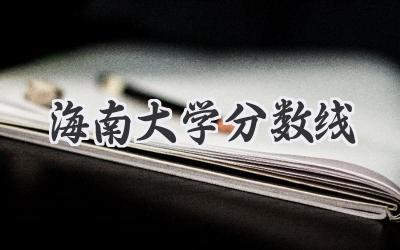 海南大学分数线